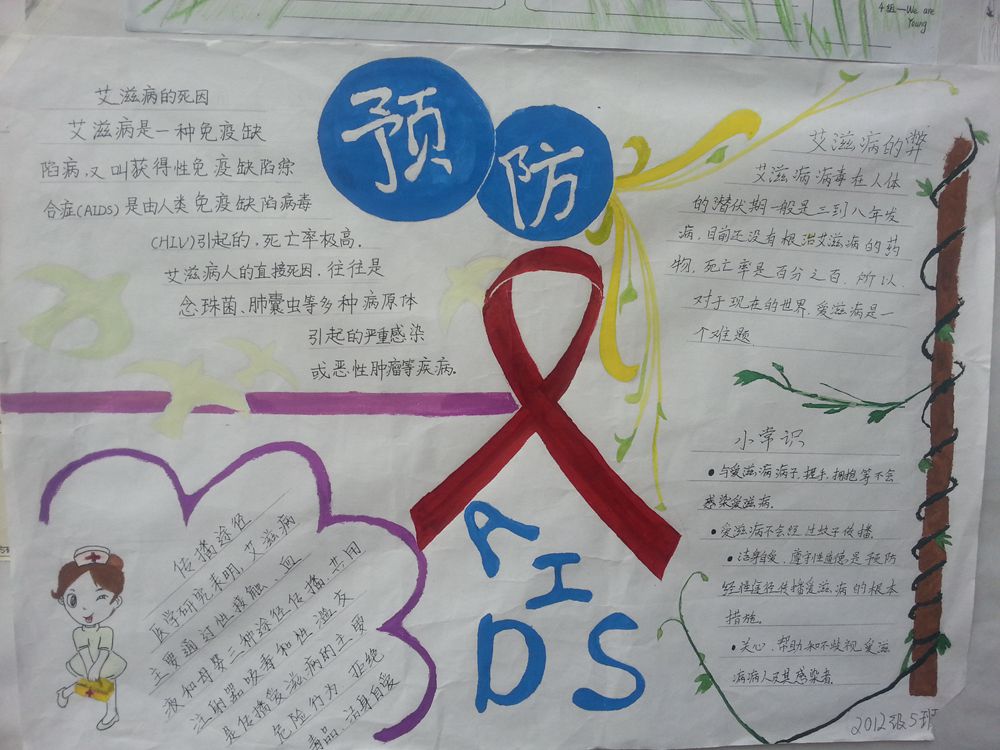 4组—We are
Young
预防
艾滋病的死因
艾滋病是一种免疫缺
陷病,又叫获得性免疫缺陷综
合症(AIDS)是由人类免疫缺陷病毒
(HIV)引起的,死亡率极高.
艾滋病人的直接死因,往往是
念珠菌、肺囊虫等多种病原体
引起的严重感染
或恶性肿瘤等疾病.
艾滋病的弊
艾滋病病毒在人体
的潜伏期一般是三到八年发
病,目前还没有根治艾滋病的药
物,死亡率是百分之百.所以,
对于现在的世界,爱滋病是一
个难题
AIDS
传播途径
医学研究表明,艾滋病
主要通过性接触、血
液和母婴三种途径传播.共用
注射器吸毒和性滥交
是传播爱滋病的主要
危险行为 拒绝
毒品.洁身自爱
小常识
•与爱滋病病子,握手,拥抱等不会
感染爱滋病.
•爱滋病不会经过蚊子传播
•洁身自爱、遵守性道德,是预防
经性途径传播爱滋病的根本
措施.
•关心、帮助和不歧视爱滋
病病人及其感染者.
2012级5班